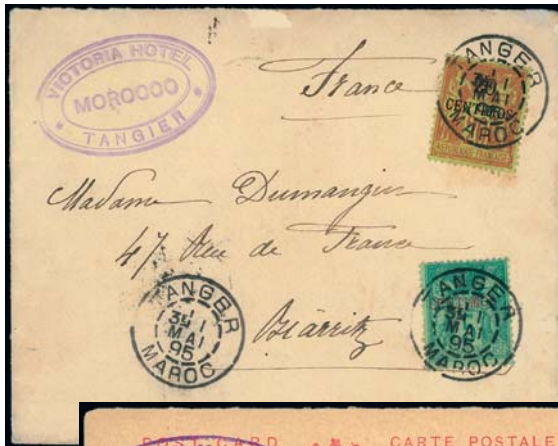 VICTORIA HOTEL
MOROCCO
TANGIER
France
TANGER
MAI
MAROC
CENTIMOS
Madame Dumangin
47 Rue de France
Biarritz
TANGER
MAI
95
MAROC
TANGER
MAI
95
MAROC
POST-CARD CARTE POSTALE